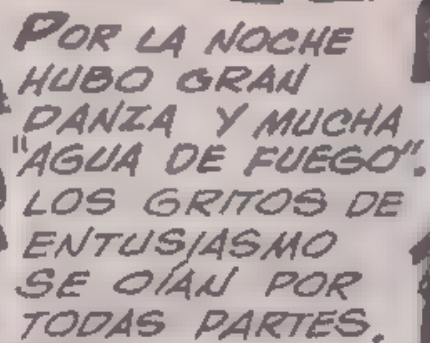 POR LA NOCHE
HUBO GRAN
DANZA Y MUCHA
"AGUA DE FUEGO".
LOS GRITOS DE
ENTUSIASMO
SE OÍAN POR
TODAS PARTES.